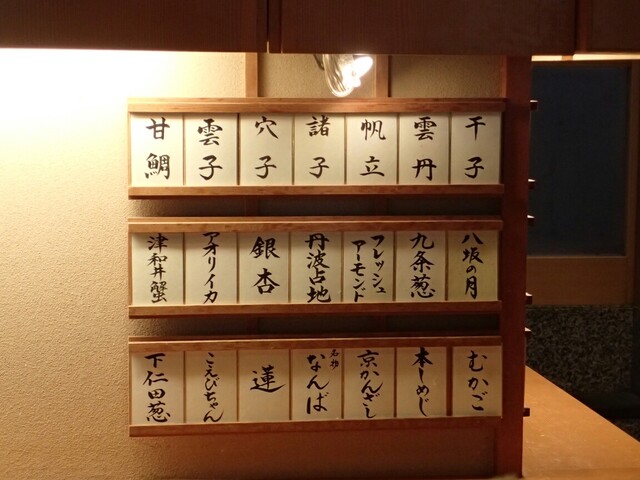 干子
雲丹
帆立
諸子
穴子
雲子
甘鯛
八坂の月
九条葱
フレッシュ
アーモンド
丹波占地
銀杏
アオリイカ
津和井蟹
むかご
本しめじ
京かんざし
名物
なんば
蓮
こえびちゃん
下仁田葱